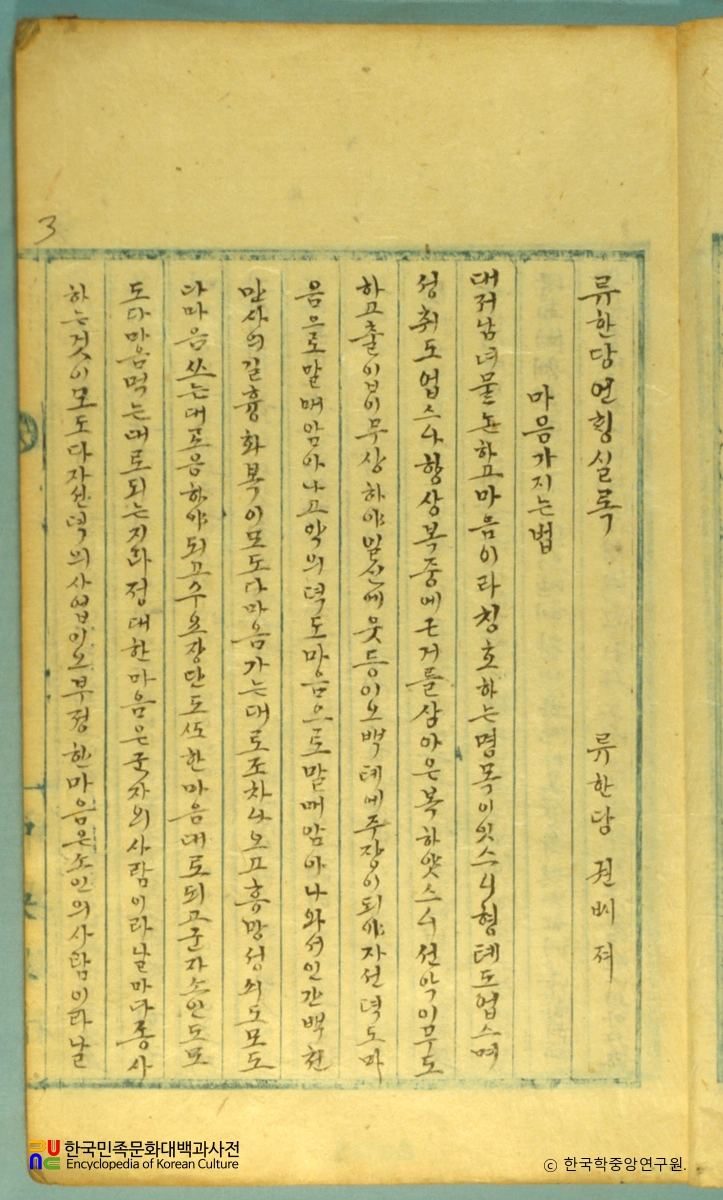 3
류한당언횡실록 류한당 권씨 저
마음가지는법
대저남녀물논하고마음이라칭호하는명목이잇스니형톄도업스며
성취도업스나항상복중에근거를삼아은복하얏스니선악이무도
하고출이입이무상하야일신에웃듬이오백톄에주장이되야자선덕도마
음으로말매암아나고악의덕도마음으로말매암아나와서인간백천
만사의길흉화복이모도다마음가는대로조차나오고흥망성쇠도모도
다마음쓰는대로응하야되고수요장단도또한마음대로되고군자소인도모
도다마음먹는대로되는지라정대한마음은군자의사람이라날마다종사
하는것이모도다자선덕의사업이오부정한마음은소인의사람이라날
한국민족문화대백과사전
Encyclopedia of Korean Culture
ⓒ 한국학중앙연구원.